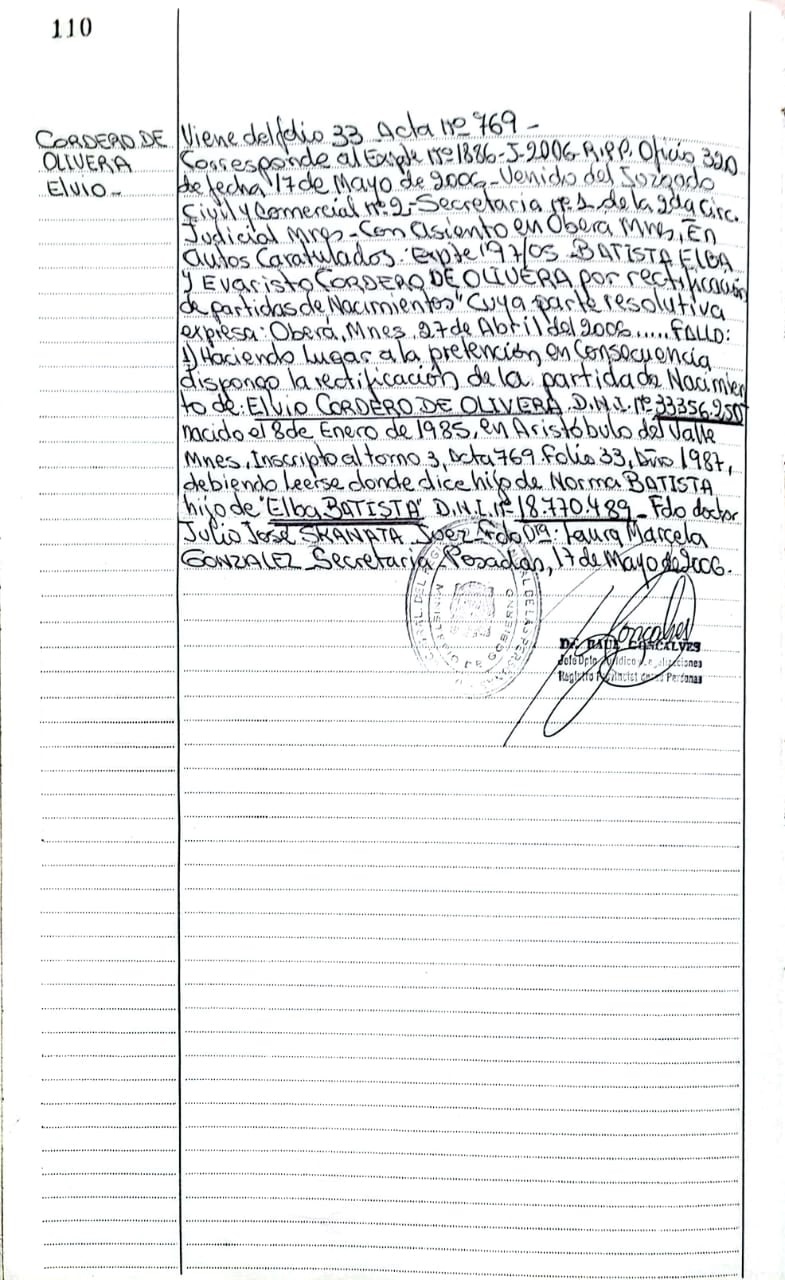 110
CORDERO DE
OLIVERA
Elvio-
Viene del folio 33 Acta Nº 769-
Corresponde al Expte Nº 1886-J-2006-R.P.P. Oficio 320
de fecha 17 de Mayo de 2006-Venido del Juzgado
Civil y Comercial nº 2-Secretaria nº 1 de la 2da Circ.
Judicial Mnes-Con Asiento en Obera Mnes, En
autos Caratulados: "Expte 197/05 BATISTA ELBA
y Evaristo CORDERO DE OLIVERA por rectificación
de partidas de Nacimientos" Cuya parte resolutiva
expresa: Oberá, Mnes, 27 de Abril del 2006.....FALLO:
1) Haciendo lugar a la pretención en Consecuencia
dispongo la rectificación de la partida de Nacimien
to de: Elvio CORDERO DE OLIVERA D.N.I. Nº 33356.950
nacido el 8 de Enero de 1985, en Aristóbulo del Valle
Mnes, Inscripto al tomo 3, acta 769 folio 33, Año 1987,
debiendo leerse donde dice hijo de Norma BATISTA
hijo de "Elba BATISTA" D.N.I. Nº 18.770.489-Fdo doctor
Julio José SKANATA Juez-Fdo Dra: Laura Marcela
GONZALEZ Secretaria-Posadas, 17 de Mayo de 2006.
MINISTERIO DE GOBIERNO
DE LAS PERSONAS
Dr. RAUL GONCALVES
Jefe Dpto Jurídico
Registro Provincial de las Personas